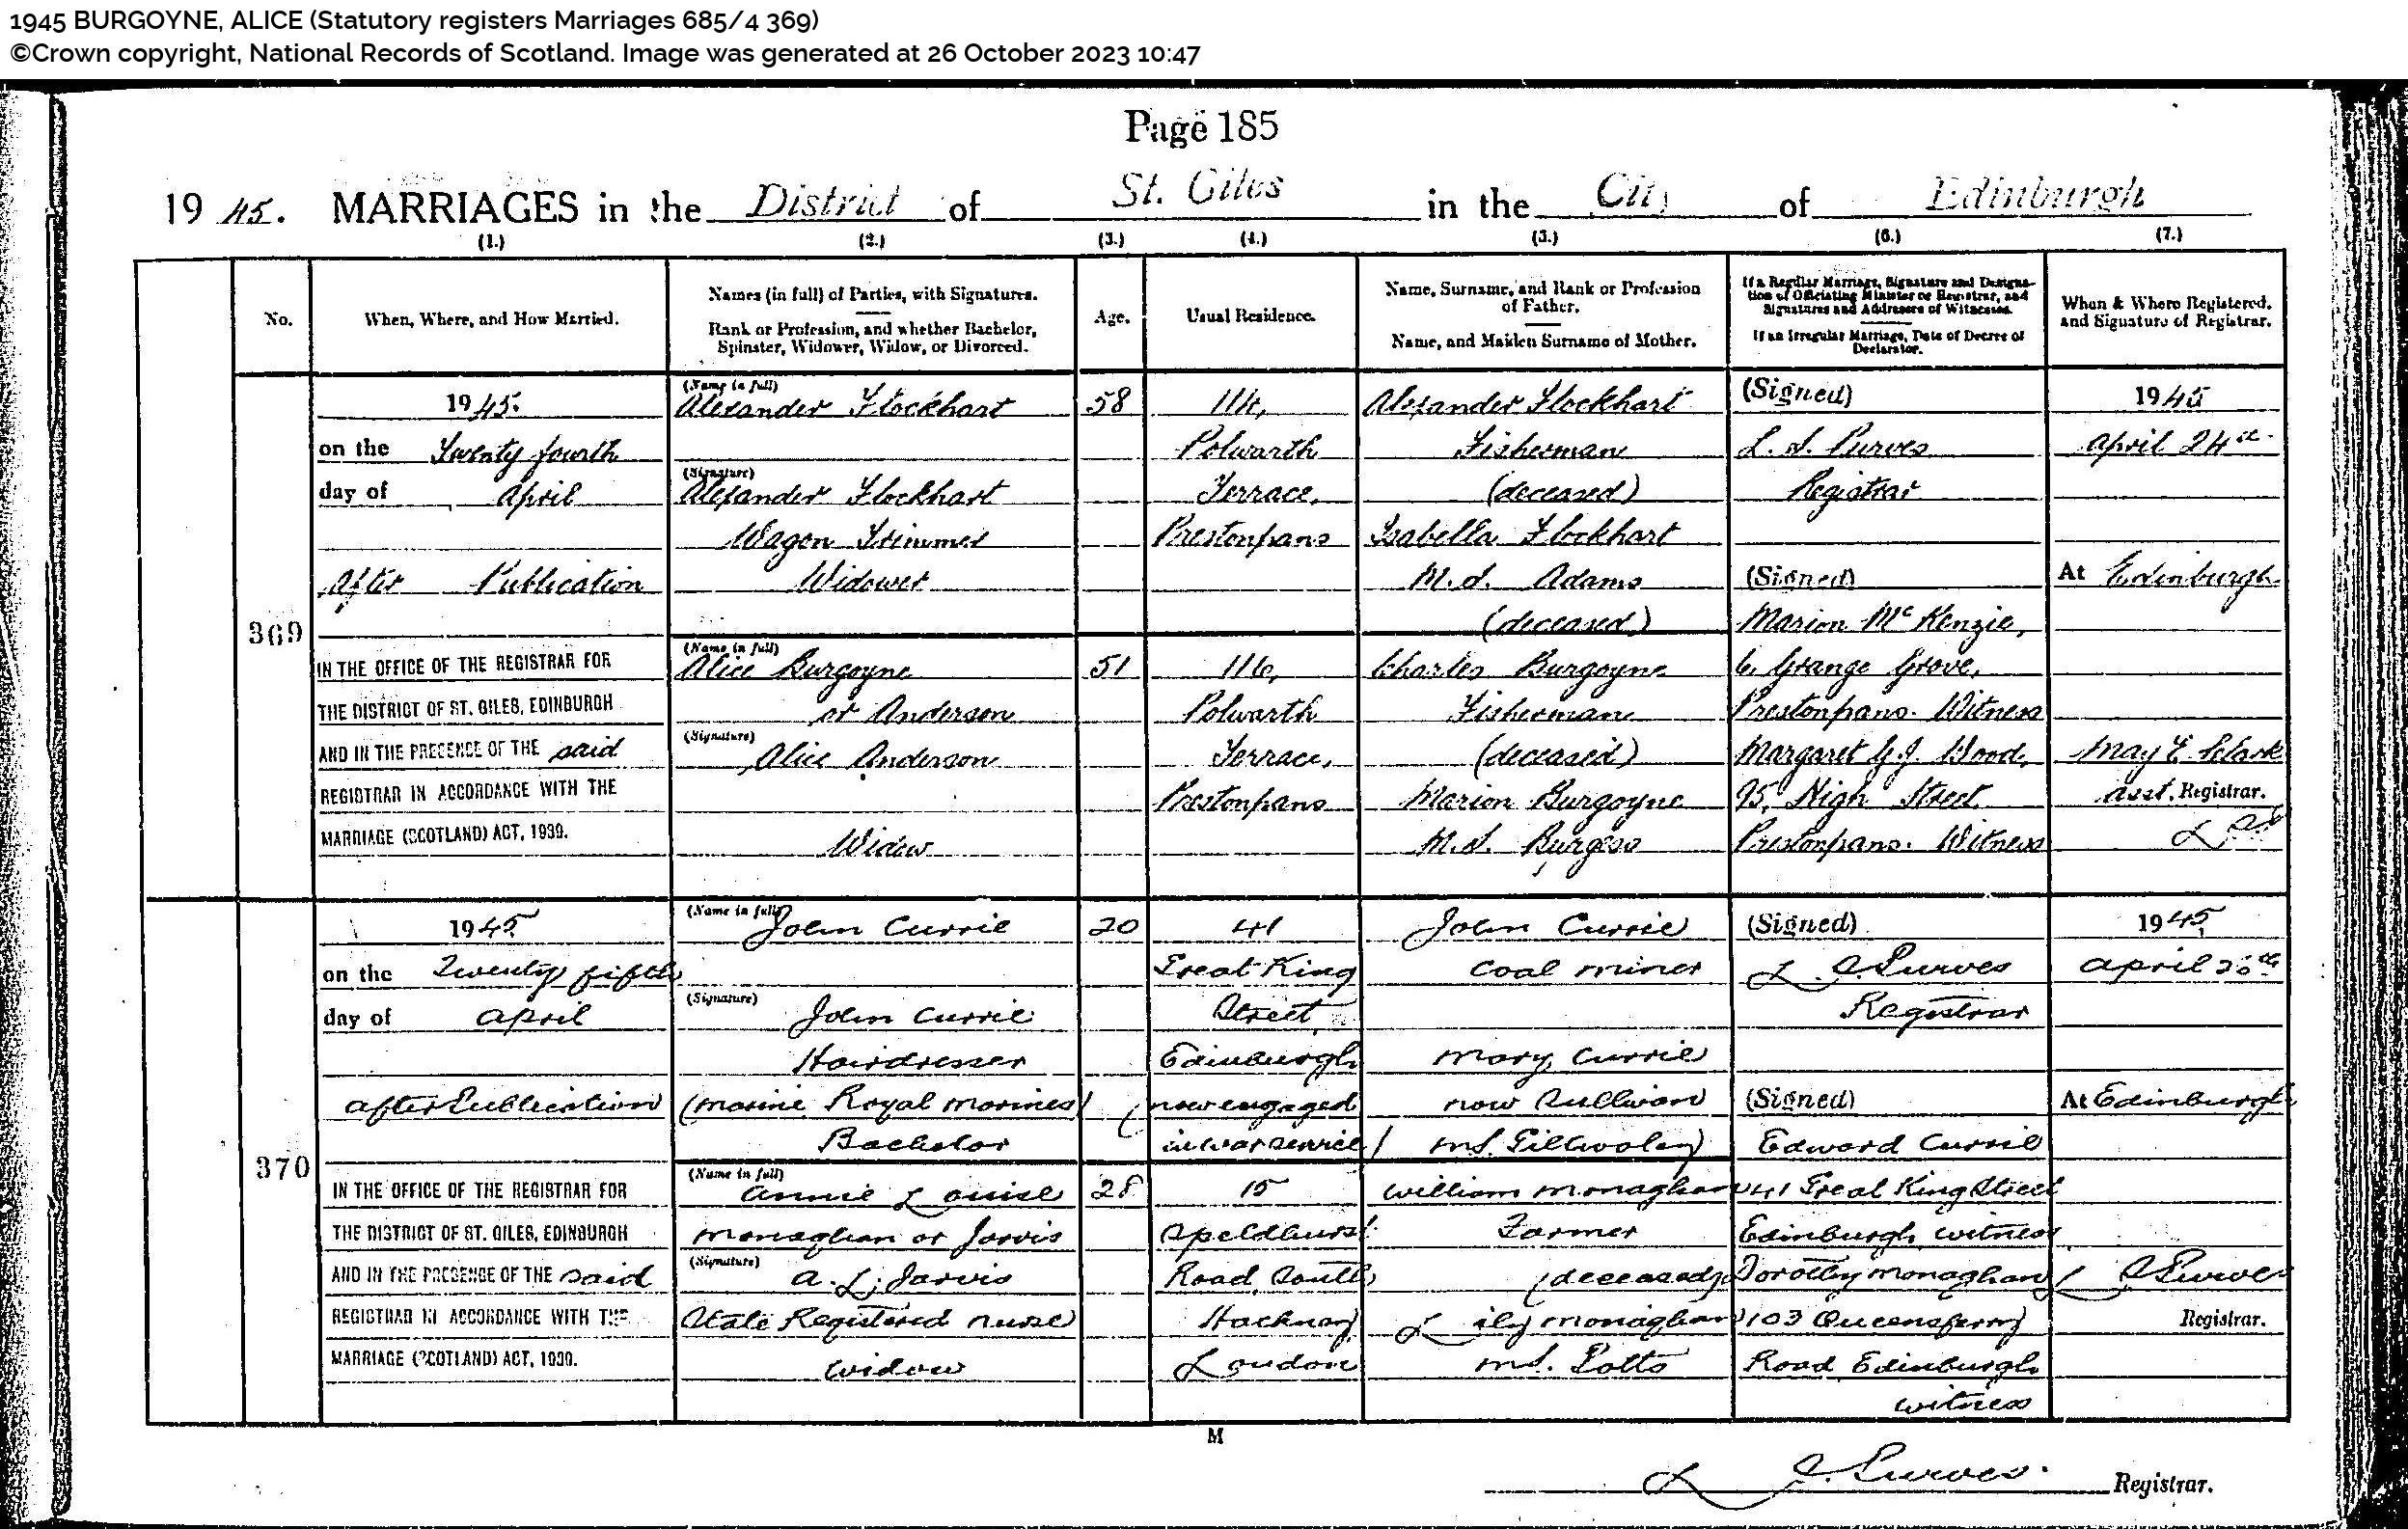 1945 BURGOYNE, ALICE (Statutory registers Marriages 685/4 369)
©Crown copyright, National Records of Scotland. Image was generated at 26 October 2023 10:47
Page 185
1945. MARRIAGES in the District of St. Giles in the City of Edinburgh
(1.) (2.) (3.) (4.) (5.) (6.) (7.)
No.
When, Where, and How Married.
Names (in full) of Parties, with Signatures.
Rank or Profession, and whether Bachelor,
Spinster, Widower, Widow, or Divorced.
Age.
Usual Residence.
Name, Surname, and Rank or Profession
of Father.
Name, and Maiden Surname of Mother.
If a Regular Marriage, Signature and Designa-
tion of Officiating Minister or Registrar, and
Signatures and Addresses of Witnesses.
If an Irregular Marriage, Date of Decree of
Declarator.
When & Where Registered,
and Signature of Registrar.
369
1945.
on the Twenty fourth
day of April
After Publication
IN THE OFFICE OF THE REGISTRAR FOR
THE DISTRICT OF ST. GILES, EDINBURGH
AND IN THE PRESENCE OF THE said
REGISTRAR IN ACCORDANCE WITH THE
MARRIAGE (SCOTLAND) ACT, 1939.
(Name in full)
Alexander Flockhart
(Signature)
Alexander Flockhart
Wagon Trimmer
Widower
(Name in full)
Alice Burgoyne
or Anderson
(Signature)
Alice Anderson
Widow
58
51
114,
Polwarth
Terrace,
Prestonpans
116,
Polwarth
Terrace,
Prestonpans
Alexander Flockhart
Fisherman
(deceased)
Isabella Flockhart
M.S. Adams
(deceased)
Charles Burgoyne
Fisherman
(deceased)
Marion Burgoyne
M.S. Burgess
(Signed)
L. S. Purves
Registrar
(Signed)
Marion McKenzie,
6, Grange Grove,
Prestonpans. Witness
Margaret Y.J. Wood,
95, High Street
Prestonpans. Witness
1945
April 24th
At Edinburgh
May E. Clark
Asst. Registrar.
370
1945
on the Twenty fifth
day of April
after Publication
IN THE OFFICE OF THE REGISTRAR FOR
THE DISTRICT OF ST. GILES, EDINBURGH
AND IN THE PRESENCE OF THE said
REGISTRAR IN ACCORDANCE WITH THE
MARRIAGE (SCOTLAND) ACT, 1939.
(Name in full)
John Currie
(Signature)
John Currie
Hairdresser
(Marine Royal Marines)
Bachelor
(Name in full)
Annie Louise
Monaghan or Jarvis
(Signature)
A. L. Jarvis
State Registered Nurse
Widow
20
28
41
Great King
Street
Edinburgh
(now engaged
in war service)
15
Speldhurst
Road South
Hackney
London
John Currie
Coal miner
Mary Currie
now Sullivan
M.S.
William Monaghan
Farmer
(deceased)
Lily Monaghan
M.S. Potts
(Signed)
L S Purves
Registrar
(Signed)
Edward Currie
41 Great King Street
Edinburgh witness
Dorothy Monaghan
103 Queensferry
Road Edinburgh
witness
1945
April
At Edinburgh
L S Purves
Registrar.
M
L S. Purves. Registrar.